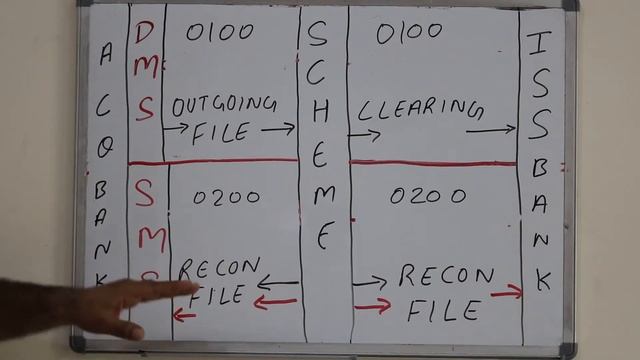 ACQ BANK
DMS
0100
OUTGOING
FILE
SCHEME
0100
CLEARING
ISS BANK
SMS
0200
RECON
FILE
0200
RECON
FILE